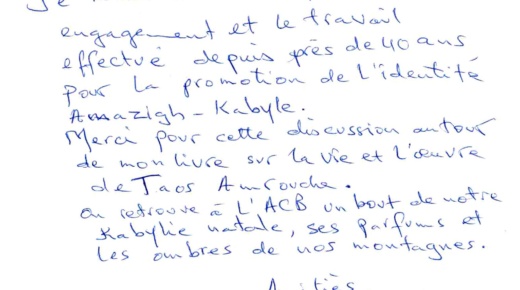 engagement et le travail
effectué depuis près de 40 ans
pour la promotion de l'identité
Amazigh-Kabyle.
Merci pour cette discussion autour
de mon livre sur la vie et l'œuvre
de Taos Amrouche.
On retrouve à L'ACB un bout de notre
Kabylie natale, ses parfums et
les ombres de nos montagnes.